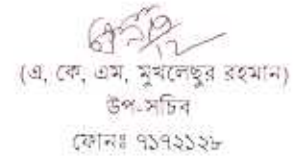 (এ, কে, এম, মুখলেছুর রহমান)
উপ-সচিব
ফোনঃ ৭১৭২১২৮